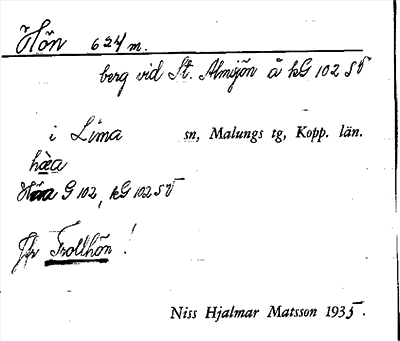 Hön 624 m.
berg vid St. Almsjön å kG 102 SV
i Lima sn, Malungs tg, Kopp. län.
hæa
Höa G 102, kG 102 SV
Jfr Trollhön!
Niss Hjalmar Matsson 1935.